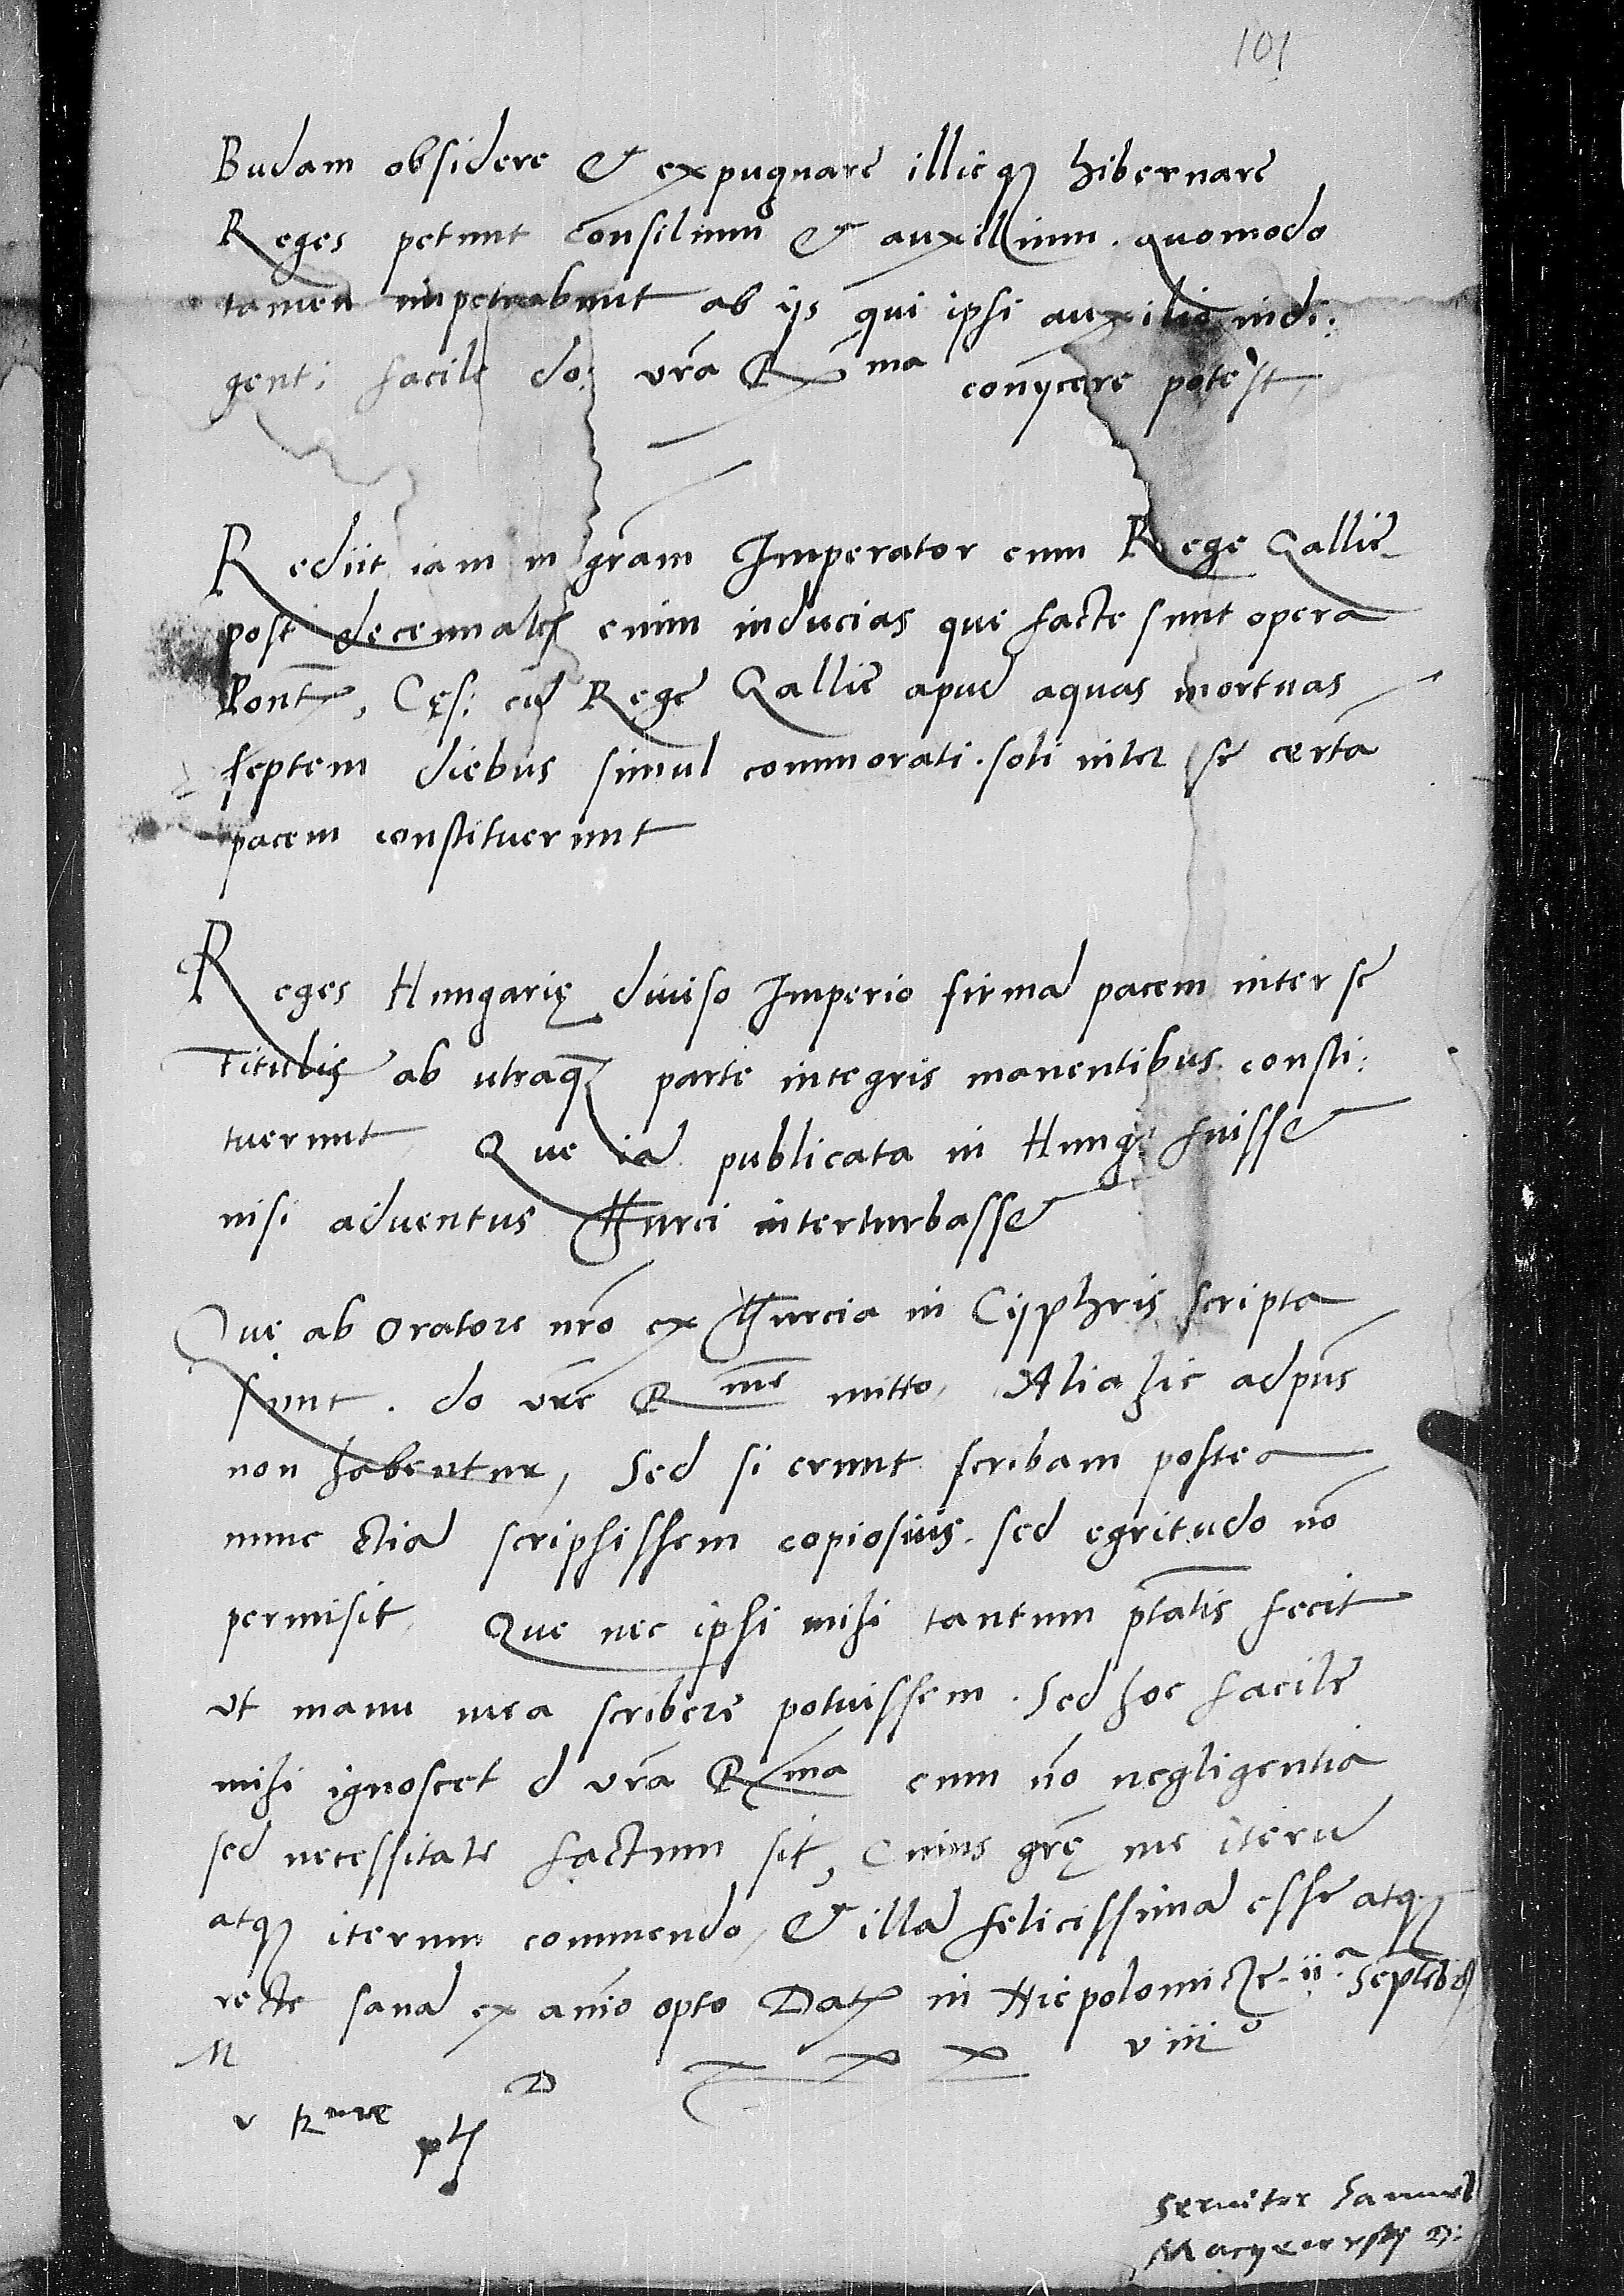 101
Budam obsidere & expugnare illicq3 hibernare
Reges petunt consilium & auxillium. quomodo
tamen impetrabunt ab ijs qui ipsi auxilio indi:
gent; facile do: vra R ma conijcere potest,
Rediit iam in gram Imperator cum Rege Gallie
post decennales enim inducias que facte sunt opera
Pont, Cęs: cu Rege Gallie apud aquas mortuas
septem diebus simul commorati. soli inter se certa
pacem constituerunt
Reges Hungarię diuiso Imperio firma pacem inter se
Titulis ab utraq3 parte integris manentibus consti:
tuerunt, Que ia publicata in Hung: fuisset
nisi aduentus Thurci interturbasset
Quę ab oratore nro ex Thurcia in Cijphris scripta
sunt. do vre R me mitto, Alia hic ad pns
non habentur, Sed si erunt scribam postea
nunc etia scripsissem copiosius. sed egritudo no
permisit, Que nec ipsi mihi tantum ptatis fecit
vt manu mea scribere potuissem. Sed hoc facile
mihi ignoscet d vra R ma cum no negligentia
sed necessitate factum sit, Cuius grę me iteru
atq3 iterum commendo, & illa felicissima esse atq3
recte sana ex anio opto Dat in Niepolomicze. ii.a Septeb
M D XXX viii o
v R me
Seruitor Samuel
Macyeiowsky D: